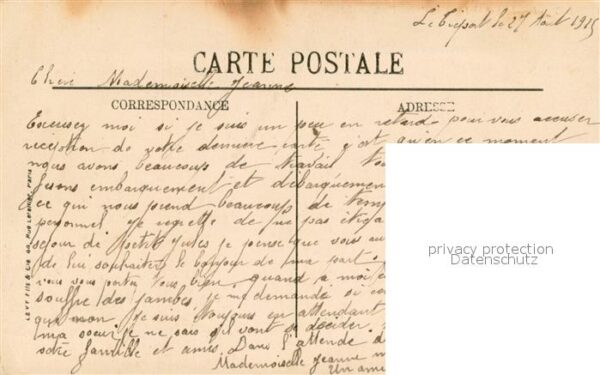 Le Tréport le 27 Août 1915
CARTE POSTALE
Chère Mademoiselle Jeanne
CORRESPONDANCE
ADRESSE
Excusez moi si je suis un peu en retard pour vous accuser
reception de votre dernière carte c'est qu'en ce moment
nous avons beaucoup de travail
faisons embarquement et débarquement
ce qui nous prend beaucoup de temps
personnel je regrette de ne pas
sejour de petit Jules je pense que vous
de lui souhaiter le bonjour de ma part
vous vous portez tous bien quand a moi
souffre des jambes je me demande si
que non je suis toujours en attendant
ma soeur je ne sais s'il vont se décider
votre famille et amis. Dans l'attende
Mademoiselle Jeanne
Un ami
LEVY FILS & Cie
Paris
privacy protection
Datenschutz